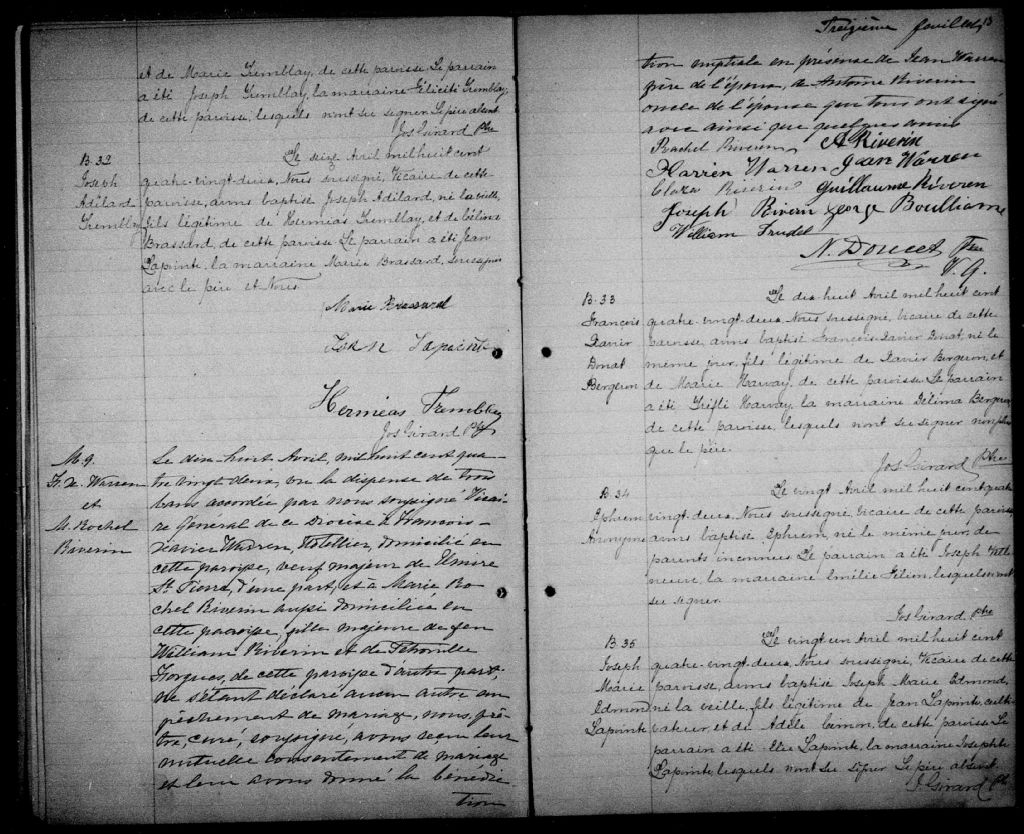 et de Marie Tremblay, de cette paroisse. Le parrain
a été Joseph Tremblay, la marraine Félicité Tremblay,
de cette paroisse, lesquels n'ont su signer. Le père absent.
Jos Girard Ptre
B. 32
Joseph
Adélard
Tremblay
Le seize Avril mil huit cent
quatre-vingt-deux, Nous soussigné, Vicaire de cette
paroisse, avons baptisé Joseph Adélard, né la veille,
fils légitime d'Herméas Tremblay, et de Céline
Brassard, de cette paroisse. Le parrain a été Jean
Lapointe, la marraine Marie Brassard, soussignés
avec le père et Nous.
Marie Brassard
Jean Lapointe
Herméas Tremblay
Jos Girard Ptre
M. 9.
F. X. Warren
et
M. Rachel
Riverin
Le dix-huit Avril, mil huit cent qua-
tre vingt deux, vu la dispense de trois
bans accordée par nous soussigné Vicai-
re Général de ce diocèse à François-
Xavier Warren, Hôtellier, domicilié en
cette paroisse, veuf majeur de
St. Pierre, d'une part, et à Marie Ra-
chel Riverin aussi domiciliée en
cette paroisse, fille majeure de feu
William Riverin et de
Forgues, de cette paroisse d'autre part;
ne s'étant déclaré aucun autre em-
pêchement de mariage, nous, prê-
tre, curé, soussigné, avons reçu leur
mutuel consentement de mariage
et leur avons donné la bénédic
tion
Treizième feuillet 13
tion nuptiale en présence de Jean Warren
frère de l'époux, de Antoine Riverin
oncle de l'épouse qui tous ont signé
avec ainsi que quelques amis
Rachel Riverin A Riverin
Warren Jean Warren
Clara Riverin Guillaume Riveren
Joseph Riverin George Boullianne
William Trudel
N. Doucet Ptre
V. G.
B. 33
François
Xavier
Donat
Bergeron
Le dix huit Avril mil huit cent
quatre-vingt-deux, Nous soussigné, vicaire de cette
paroisse, avons baptisé François-Xavier Donat, né le
même jour, fils légitime de Xavier Bergeron, et
de Marie Harvay, de cette paroisse. Le parrain
a été Harvay, la marraine Délima Bergeron,
de cette paroisse, lesquels n'ont su signer non plus
que le père.
Jos Girard Ptre
B. 34
Ephrem
Anonyme
Le vingt Avril mil huit cent quatre
vingt-deux, Nous soussigné, vicaire de cette paroisse,
avons baptisé Ephrem, né le même jour, de
parents inconnus. Le parrain a été Joseph
la marraine Emilie lesquels n'ont
su signer.
Jos Girard Ptre
B. 35
Joseph
Marie
Edmond
Lapointe
Le vingt un Avril mil huit cent
quatre-vingt-deux, Nous soussigné, Vicaire de cette
paroisse, avons baptisé Joseph Marie Edmond,
né la veille, fils légitime de Jean Lapointe, culti-
vateur, et de Adèle Simon, de cette paroisse. Le
parrain a été Elie Lapointe, la marraine Josephte
Lapointe, lesquels n'ont su signer. Le père absent.
J. Girard Ptre